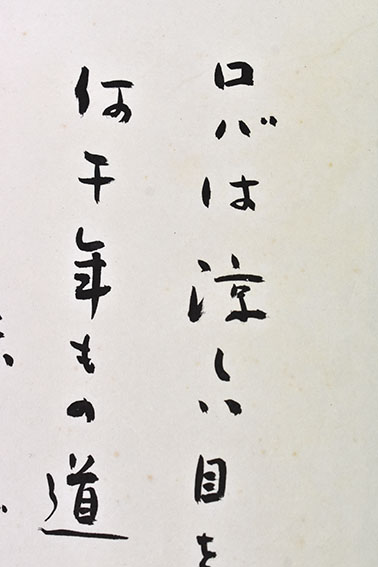 ロバは涼しい目を
何千年もの道